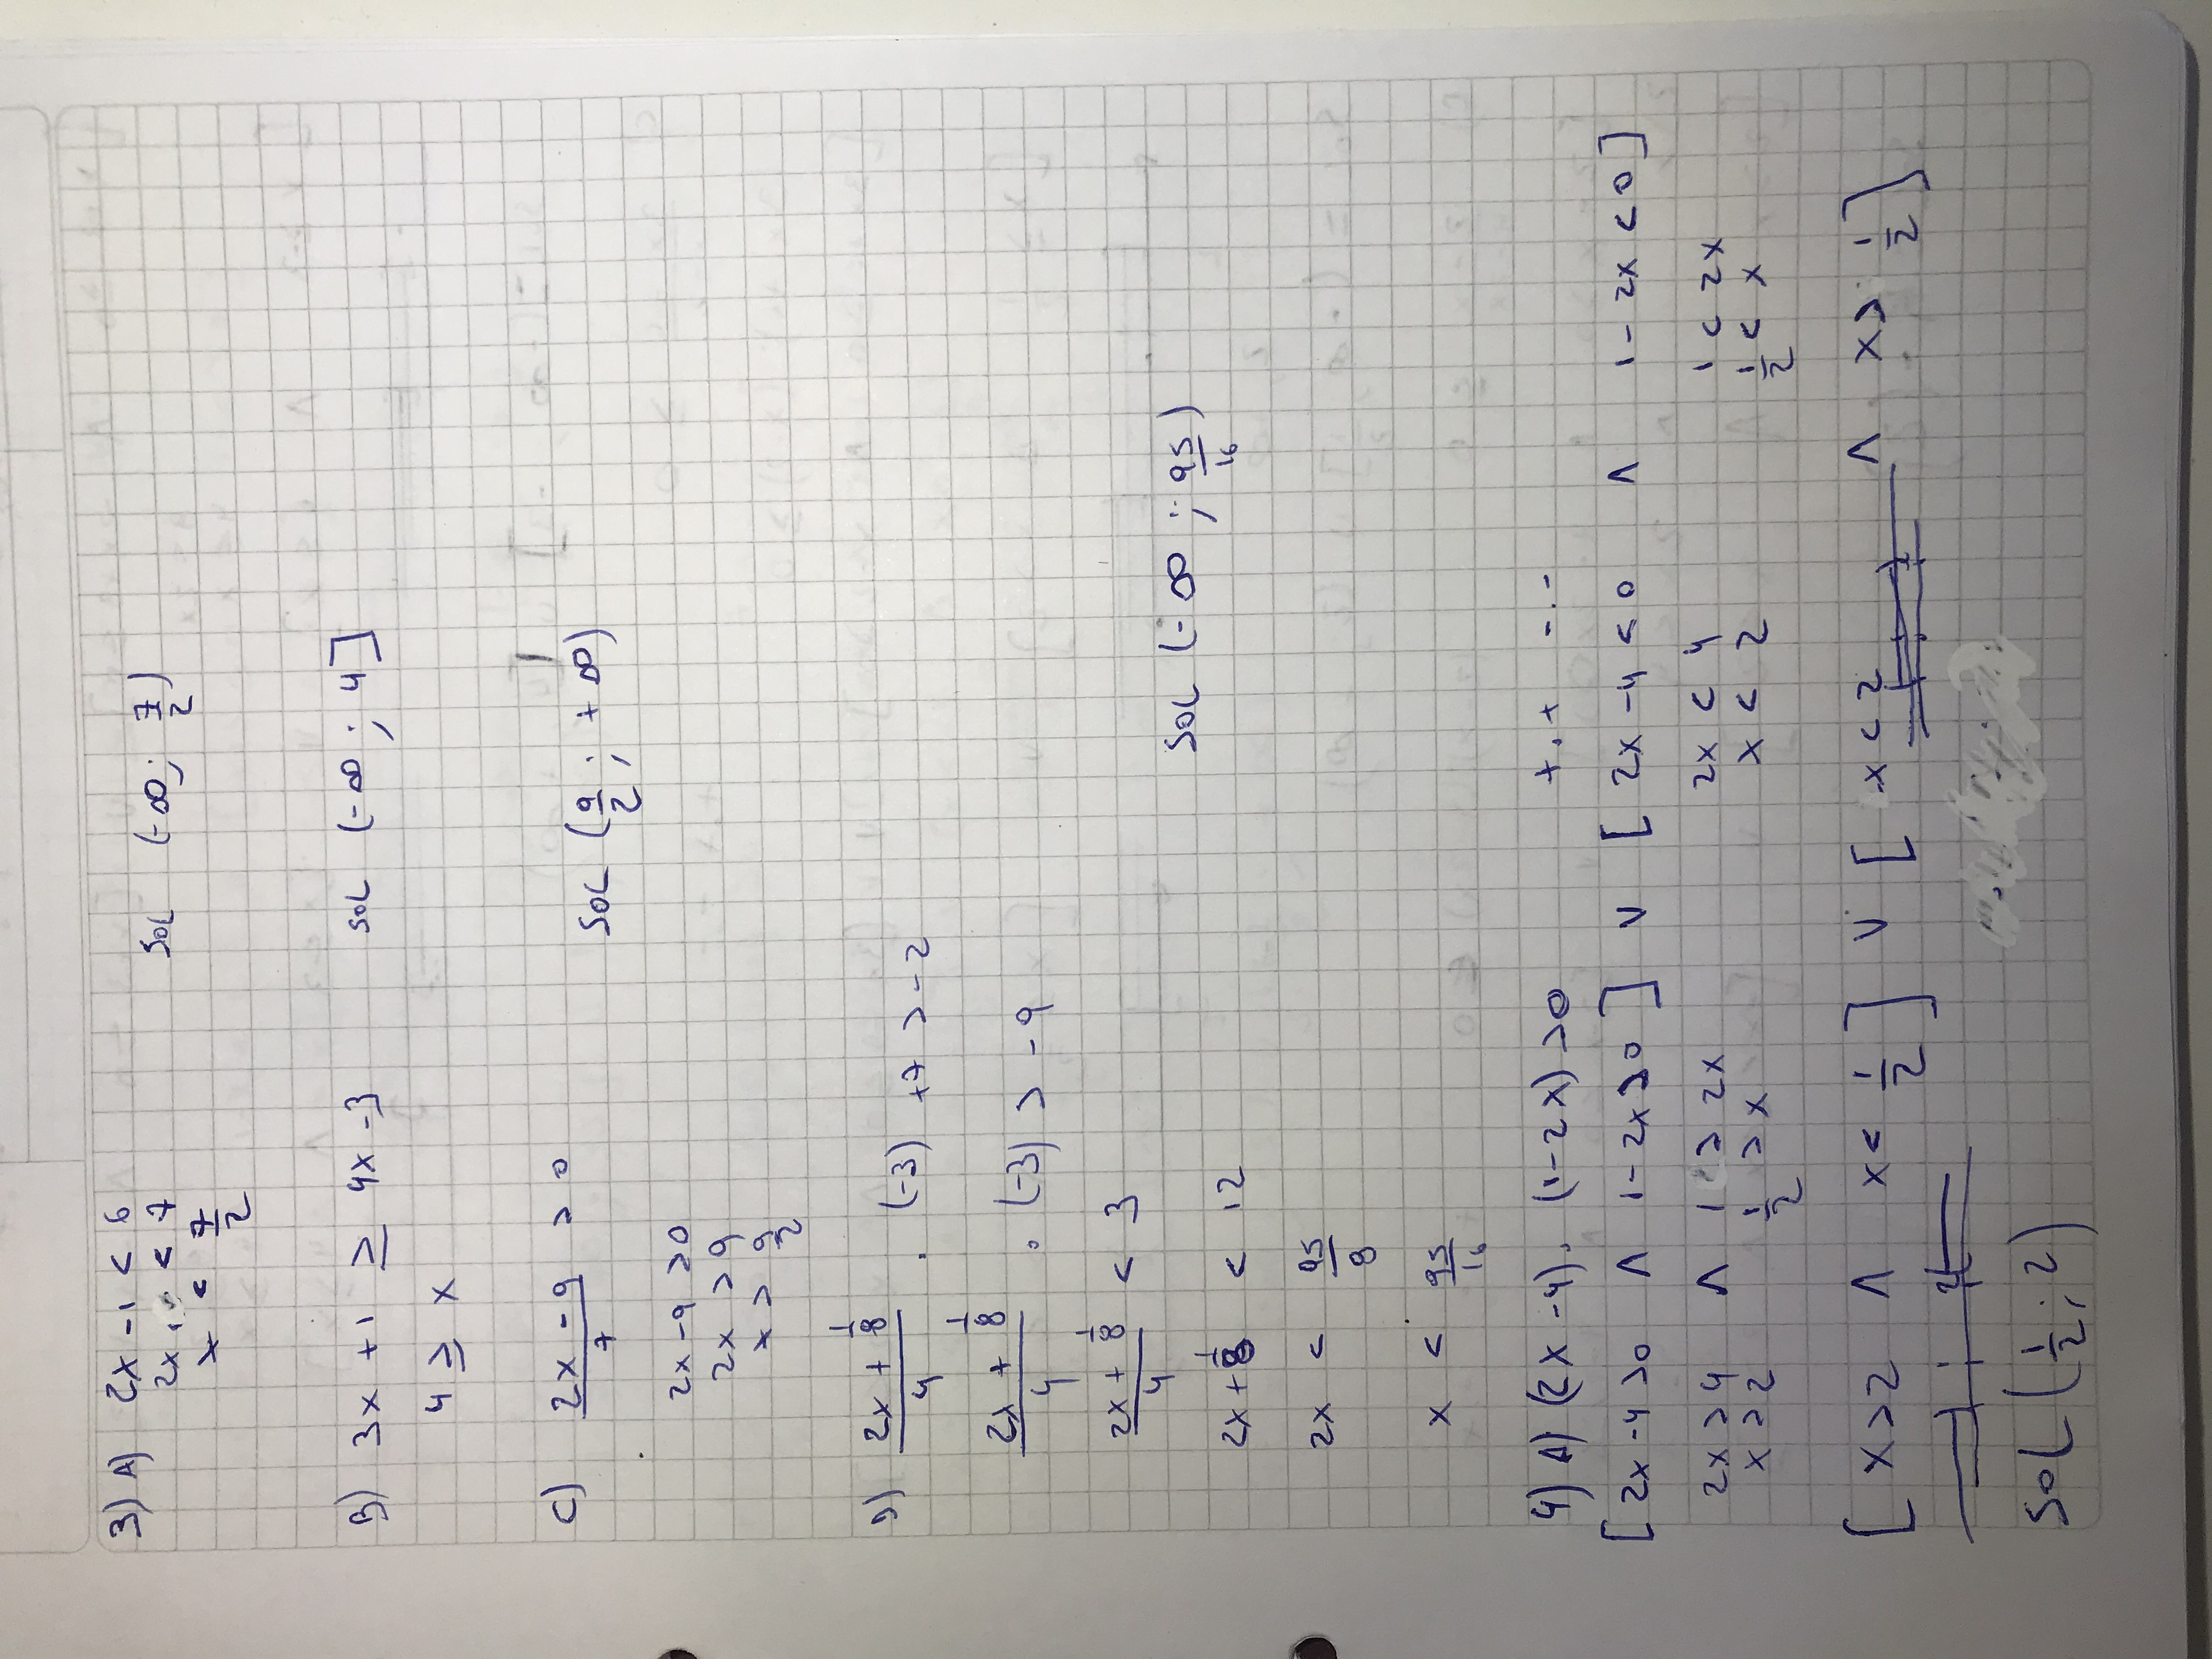 3) A) 2x - 1 < 6
2x < 7
x < 7/2
SOL (-∞; 7/2)
B) 3x + 1 ≥ 4x - 3
SOL (-∞; 4]
4 ≥ x
C) (2x - 9)/7 > 0
SOL (9/2; +∞)
2x - 9 > 0
2x > 9
x > 9/2
D) (2x + 1/8)/4 . (-3) + 7 > -2
(2x + 1/8)/4 . (-3) > -9
(2x + 1/8)/4 < 3
SOL (-∞; 95/16)
2x + 1/8 < 12
2x < 95/8
x < 95/16
4) A) (2x - 4) . (1 - 2x) > 0 + . + - . -
[2x - 4 > 0 ∧ 1 - 2x > 0] ∨ [2x - 4 < 0 ∧ 1 - 2x < 0]
2x > 4 ∧ 1 > 2x 2x < 4 1 < 2x
x > 2 1/2 > x x < 2 1/2 < x
[x > 2 ∧ x < 1/2] ∨ [x < 2 ∧ x > 1/2]
SOL (1/2; 2)